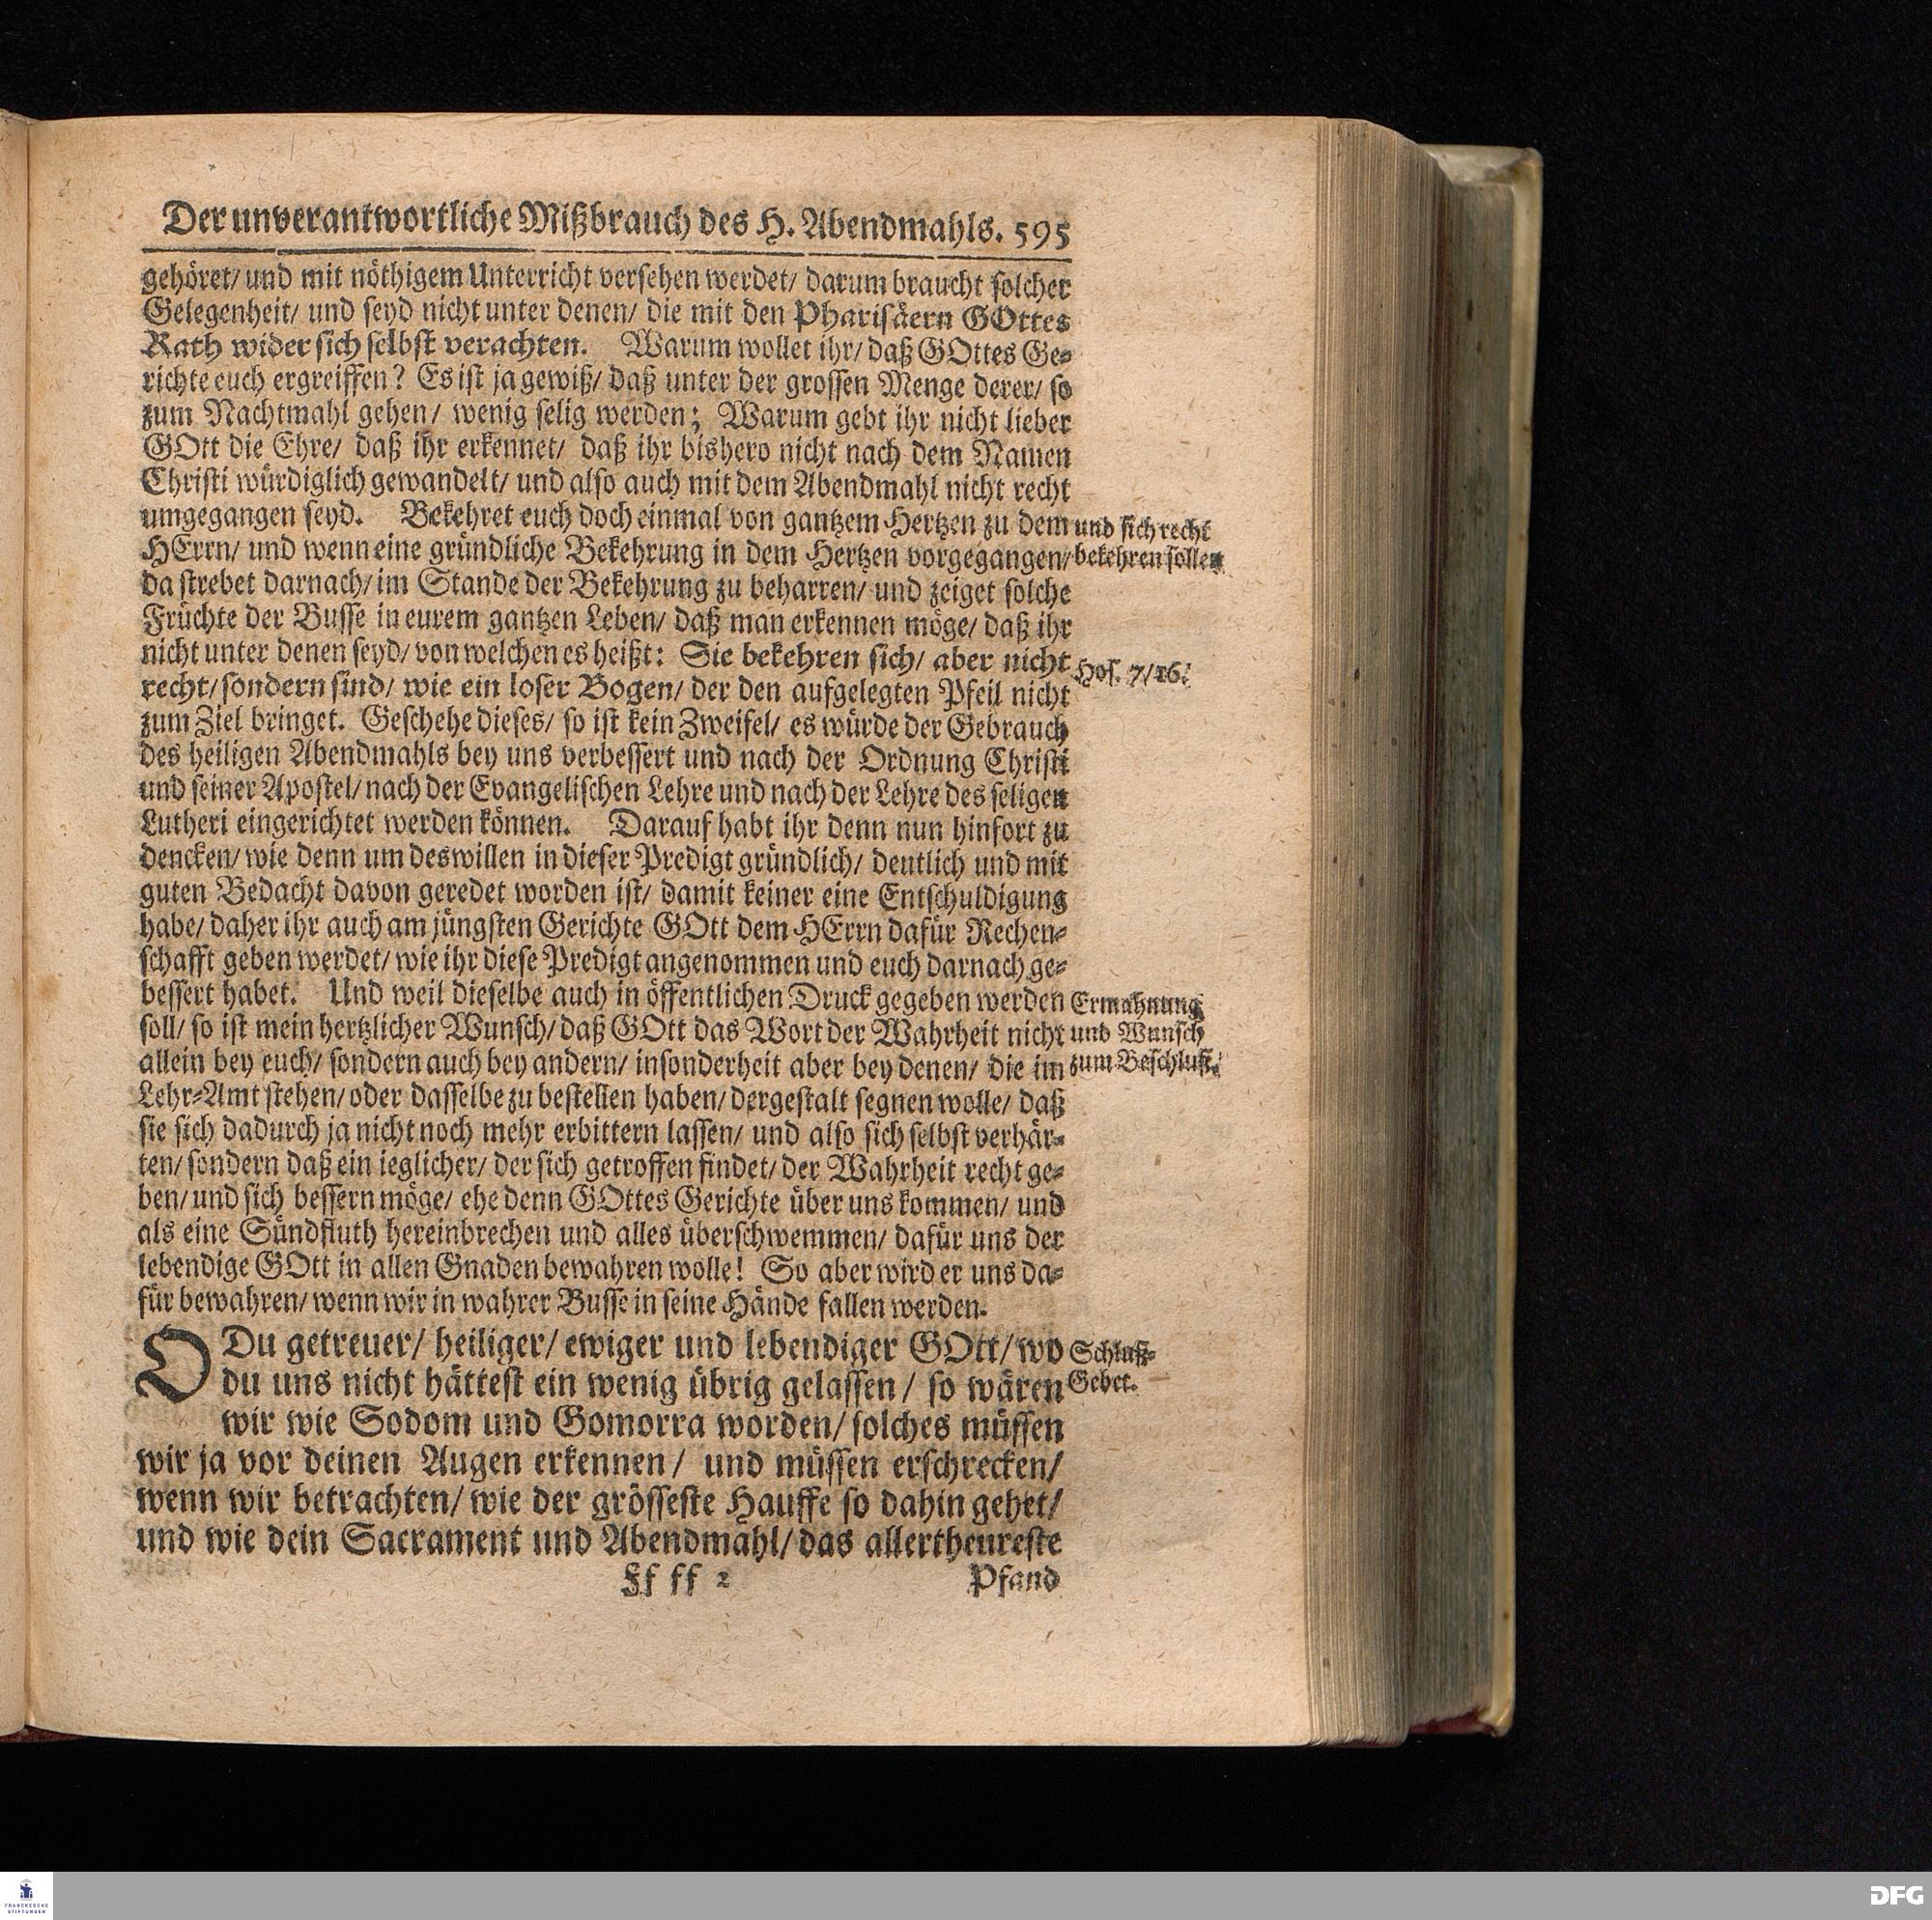 Der unverantwortliche Mißbrauch des H. Abendmahls. 595
gehöret/ und mit nöthigem Unterricht versehen werdet/ darum braucht solcher
Gelegenheit/ und seyd nicht unter denen/ die mit den Pharisäern GOttes
Rath wider sich selbst verachten. Warum wollet ihr/ daß GOttes Ge-
richte euch ergreiffen? Es ist ja gewiß/ daß unter der grossen Menge derer/ so
zum Nachtmahl gehen/ wenig selig werden; Warum gebt ihr nicht lieber
GOtt die Ehre/ daß ihr erkennet/ daß ihr bishero nicht nach dem Namen
Christi würdiglich gewandelt/ und also auch mit dem Abendmahl nicht recht
umgegangen seyd. Bekehret euch doch einmal von gantzem Hertzen zu dem
und sich recht
HErrn/ und wenn eine gründliche Bekehrung in dem Hertzen vorgegangen/
bekehren sollen
da strebet darnach/ im Stande der Bekehrung zu beharren/ und zeiget solche
Früchte der Busse in eurem gantzen Leben/ daß man erkennen möge/ daß ihr
nicht unter denen seyd/ von welchen es heißt: Sie bekehren sich/ aber nicht
Hos. 7/16.
recht/ sondern sind/ wie ein loser Bogen/ der den aufgelegten Pfeil nicht
zum Ziel bringet. Geschehe dieses/ so ist kein Zweifel/ es würde der Gebrauch
des heiligen Abendmahls bey uns verbessert und nach der Ordnung Christi
und seiner Apostel/ nach der Evangelischen Lehre und nach der Lehre des seligen
Lutheri eingerichtet werden können. Darauf habt ihr denn nun hinfort zu
dencken/ wie denn um deswillen in dieser Predigt gründlich/ deutlich und mit
guten Bedacht davon geredet worden ist/ damit keiner eine Entschuldigung
habe/ daher ihr auch am jüngsten Gerichte GOtt dem HErrn dafür Rechen-
schafft geben werdet/ wie ihr diese Predigt angenommen und euch darnach ge-
bessert habet. Und weil dieselbe auch in öffentlichen Druck gegeben werden
Ermahnung
soll/ so ist mein hertzlicher Wunsch/ daß GOtt das Wort der Wahrheit nicht
und Wunsch
allein bey euch/ sondern auch bey andern/ insonderheit aber bey denen/ die im
zum Beschluß.
Lehr-Amt stehen/ oder dasselbe zu bestellen haben/ dergestalt segnen wolle/ daß
sie sich dadurch ja nicht noch mehr erbittern lassen/ und also sich selbst verhär-
ten/ sondern daß ein ieglicher/ der sich getroffen findet/ der Wahrheit recht ge-
ben/ und sich bessern möge/ ehe denn GOttes Gerichte über uns kommen/ und
als eine Sündfluth hereinbrechen und alles überschwemmen/ dafür uns der
lebendige GOtt in allen Gnaden bewahren wolle! So aber wird er uns da-
für bewahren/ wenn wir in wahrer Busse in seine Hände fallen werden.
O Du getreuer/ heiliger/ ewiger und lebendiger GOtt/ wo
Schluß-
du uns nicht hättest ein wenig übrig gelassen/ so wären
Gebet.
wir wie Sodom und Gomorra worden/ solches müssen
wir ja vor deinen Augen erkennen/ und müssen erschrecken/
wenn wir betrachten/ wie der grösseste Hauffe so dahin gehet/
und wie dein Sacrament und Abendmahl/ das allertheureste
Ff ff 2
Pfand
FRANCKESCHE
STIFTUNGEN
DFG